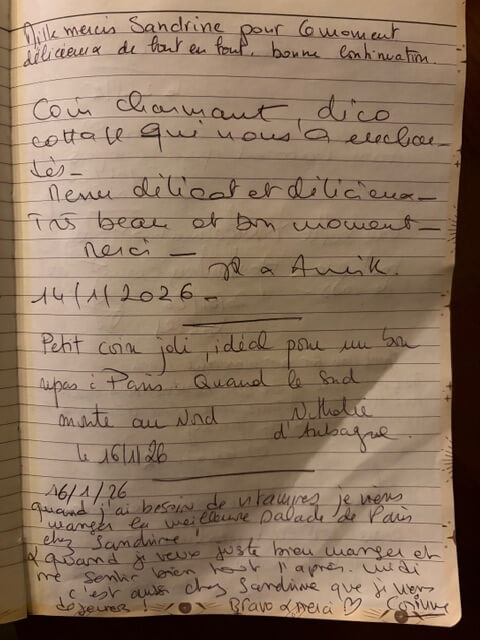 Mille mercis Sandrine pour ce moment
délicieux de bout en bout, bonne continuation.
Coin charmant, déco
qui nous a enchan-
tés -
Menu délicat et délicieux -
Très beau et bon moment -
Merci -
JP a Annik.
14/1/2026 -
Petit coin joli, idéal pour un bon
repas à Paris. Quand le Sud
monte au Nord
Nathalie
d'Aubagne.
le 16/1/26
16/1/26
quand j'ai besoin de vitamines je viens
manger la meilleure salade de Paris
chez Sandrine !
& quand je veux juste bien manger et
me sentir bien tout l'après-midi
c'est aussi chez Sandrine que je viens
toujours !
Bravo & merci ♡ Corinne